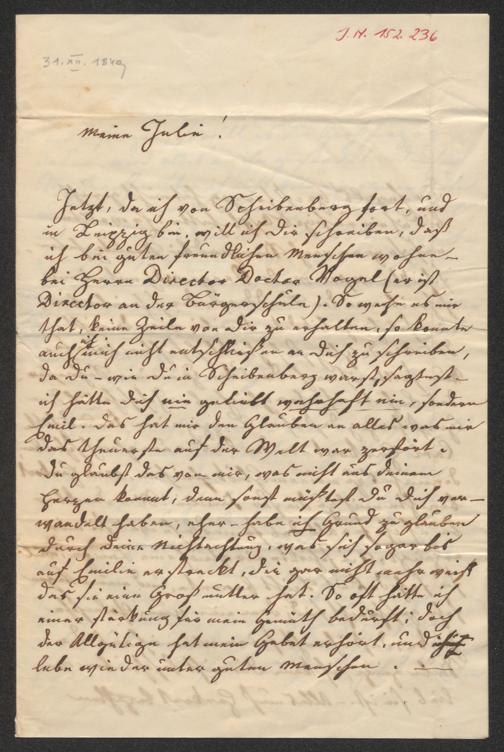 J.N. 152.236
31. XII. 1849
Meine Julie!
Jetzt, da ich von Scheibenberg fort, und
in Leipzig bin, will ich dir schreiben, daß
ich bei guten freundlichen Menschen wohne –
bei Herrn Director Doctor Vogel (er ist
Director an der Bürgerschule). So wehe es mir
that, keine Zeile von dir zu erhalten, so konnte
auch ich mich nicht entschließen an dich zu schreiben,
da du – wie du in Scheibenberg warst, sagtest –
ich hätte dich nie geliebt wahrhaft nie, sondern
Emil. das hat mir den Glauben an alles was mir
das theuerste auf der Welt war zerstört.
Du glaubst das von mir, was nicht aus deinem
Herzen kommt, denn sonst müßtest du dich ver-
wandelt haben, eher – habe ich Grund zu glauben
durch deine Nichtachtung, was sich sogar bis
auf Emilie erstreckt, die gar nicht mehr weiß
das sie eine Großmutter hat. So oft hätte ich
einer stärkung für mein Gemüth bedurft; doch
der Allgütige hat mein Gebet erhört, und
lebe wieder unter guten Menschen. —